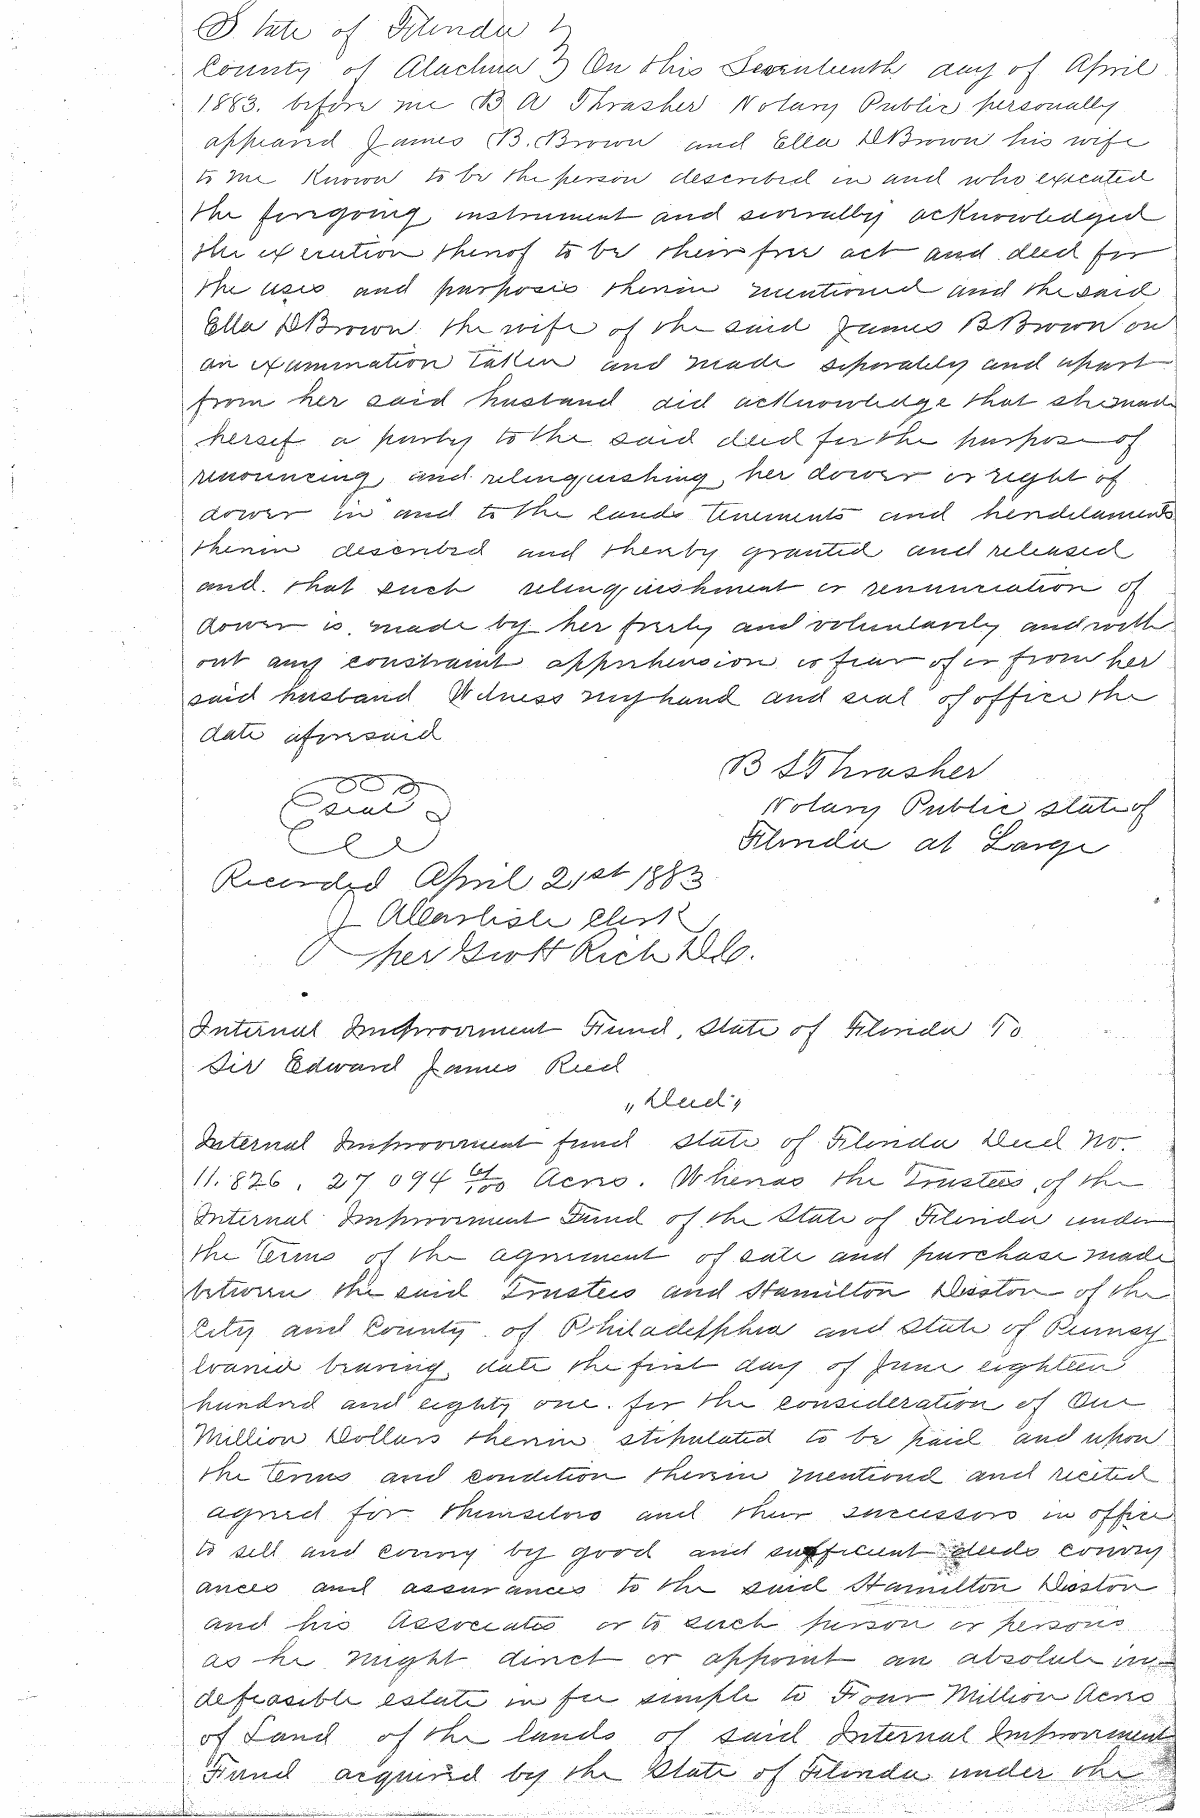 State of Florida }
County of Alachua } On this Seventeenth day of April
1883. before me B A Thrasher Notary Public personally
appeared James B. Brown and Ella D Brown his wife
to me Known to be the person described in and who executed
the foregoing instrument and severally acknowledged
the execution thereof to be their free act and deed for
the uses and purposes therein mentioned and the said
Ella D Brown the wife of the said James B Brown on
an examination taken and made seperately and apart
from her said husband did acknowledge that she made
herself a party to the said deed for the purpose of
renouncing and relinquishing her dower or right of
dower in and to the lands tenements and hereditaments
therein described and thereby granted and released
and. that such relinquishment or renunciation of
dower is made by her freely and voluntarily and with
out any constraint apprehension or fear of or from her
said husband Witness my hand and seal of office the
date aforesaid
B S Thrasher
seal
Notary Public state of
Florida at Large
Recorded April 21st 1883
J A Carlisle Clerk
per Scott Rich D.C.
Internal Improvement Fund, State of Florida To
Sir Edward James Reed
"Deed"
Internal Improvement fund state of Florida Deed No.
11.826. 27 094 /100 Acres. Whereas the Trustees of the
Internal Improvement Fund of the State of Florida under
the terms of the agreement of sale and purchase made
between the said Trustees and Hamilton Disston of the
City and County of Philadelphia and State of Pennsy
lvania bearing date the first day of June eighteen
hundred and eighty one. for the consideration of One
Million Dollars therein stipulated to be paid and upon
the terms and condition therein mentioned and recited
agreed for themselves and their successors in office
to sell and convey by good and sufficient deeds convey
ances and assurances to the said Hamilton Disston
and his Associates or to such person or persons
as he might direct or appoint an absolute in
defeasible estate in fee simple to Four Million Acres
of Land of the lands of said Internal Improvement
Fund acquired by the State of Florida under the